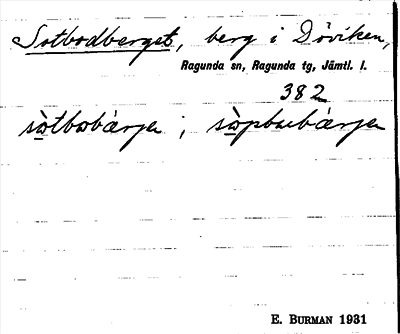 Sotbodberget, berg i Döviken,
Ragunda sn, Ragunda tg, Jämtl. l.
382
sòtbobàrjen ; sòpbobàrjen
E. BURMAN 1931